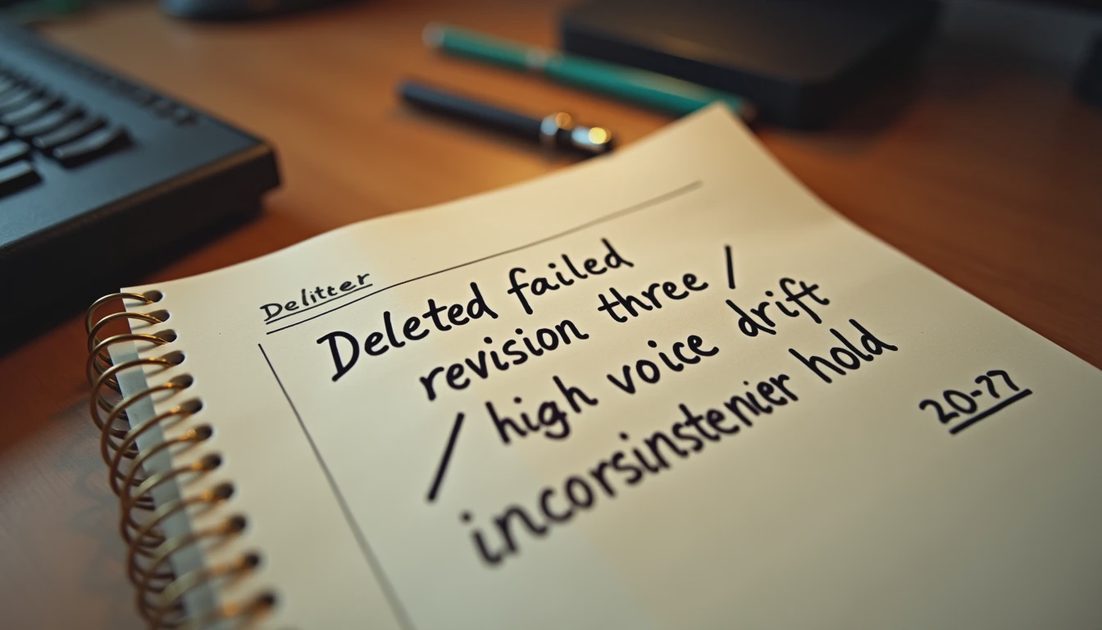 Delitter
Deleted failed
revision three /
/ high voice drift
incorsinstenier hold
20-77